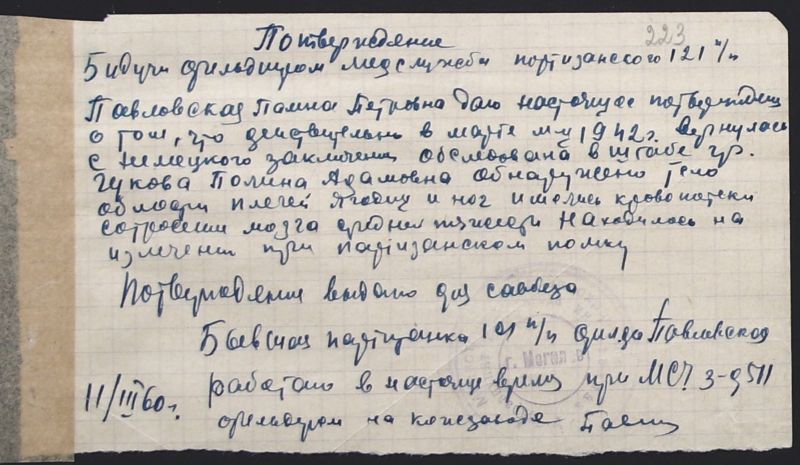 223
Потверждение
Бидучи фельдшером медслужбы портизанского 121 п/п
Павловская Галина Петровна даю настоящее потверждение
о том, что действительно в марте м-це 1942 г. вернулась
с немецкого заключения обследована в штабе гр.
Гукова Полина Адамовна обнаружено тело
области плечей ягодиц и ног имелись кровопотеки
сотресении мозга средней тяжести Находилась на
излечении при партизанском полку
Потверждение выдано для
Бывшая партизанка 121 п/п Павловская
11/III 60 г. работаю в настоящее время при МСЧ
фельдшером на кожзаводе
г. Могил